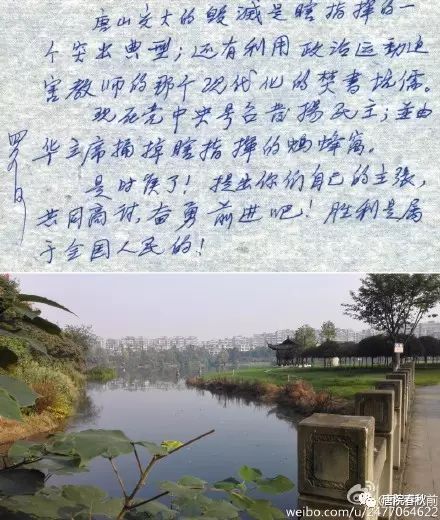 唐山交大的毁灭是瞎指挥的一
个突出典型；还有利用政治运动迫
害教师的那个现代化的焚书坑儒。
现在党中央号召发扬民主；並由
华主席捅掉瞎指挥的蚂蜂窝。
是时候了！提出你们自己的主张，
共同商讨，奋勇前进吧！胜利是属
于全国人民的！
唐院春秋前
weibo.com/u/2477064622